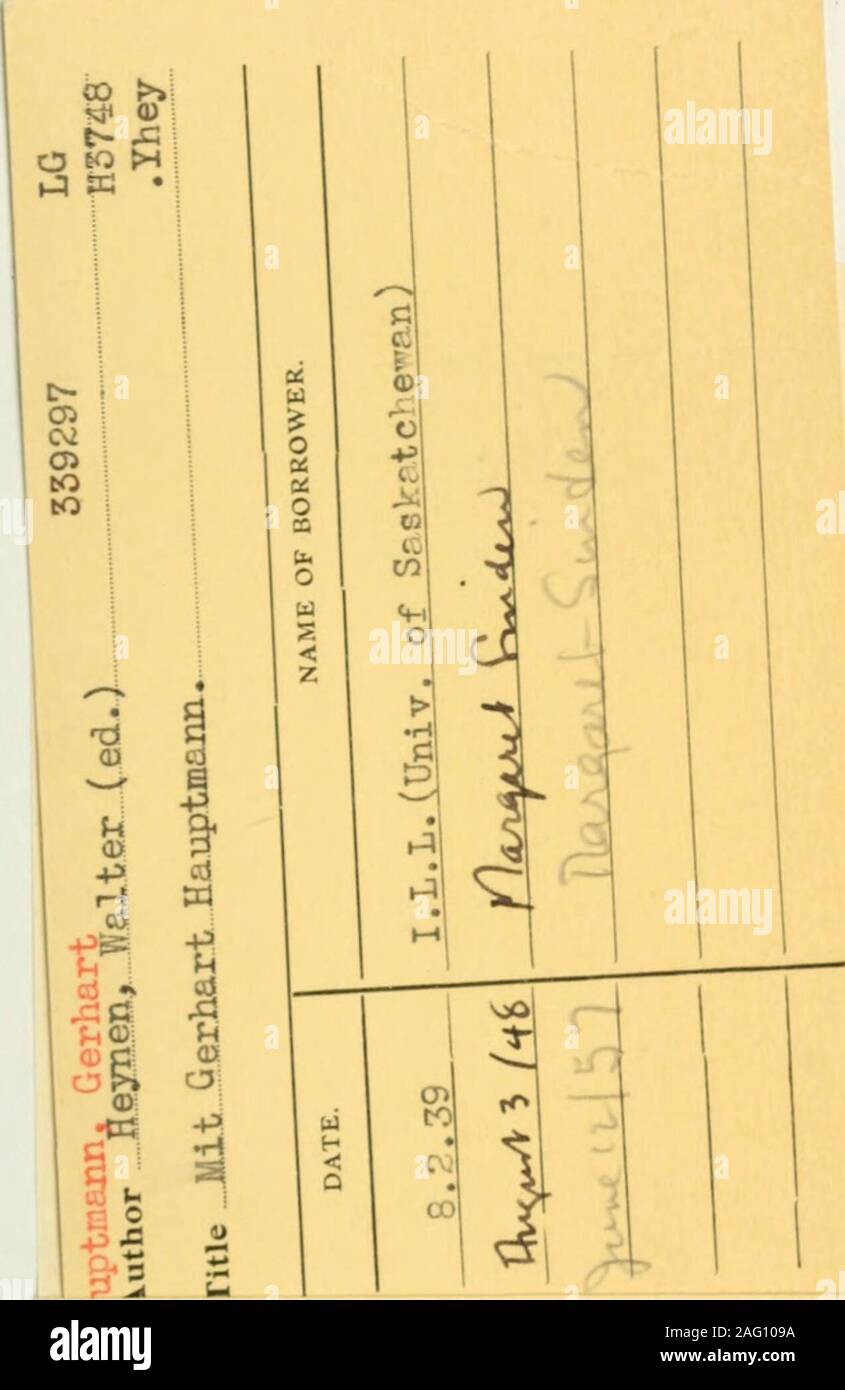 LG
339297 H3748
.Yhey
uptmann, Gerhart
Author Heynen, Walter (ed.)
Title Mit Gerhart Hauptmann.
DATE. NAME OF BORROWER.
8.2.39 I.L.L.(Univ. of Saskatchewan)
August 3/48 Margaret Sinden
June 12/57 Margaret Sinden
alamy
alamy
alamy
alamy
Image ID: 2AG109A
www.alamy.com